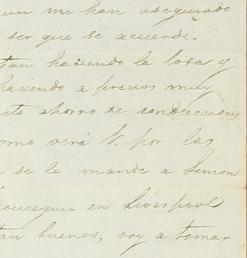 un me han asegurado
ser que se acuerde.
tan haciendo la losa y
haciendo a precios muy
sto ahorro de conducciones
omo verá V. por las
se le mande a Simon
conseguir en Liverpool
tan buenos, voy a tomar